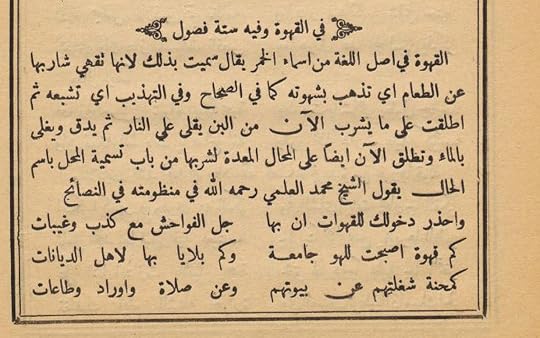 في القهوة وفيه ستة فصول
القهوة في اصل اللغة من اسماء الخمر يقال سميت بذلك لانها تقهي شاربها
عن الطعام اي تذهب بشهوته كما في الصحاح وفي التهذيب اي تشبعه ثم
اطلقت على ما يشرب الآن من البن يقلى على النار ثم يدق ويغلى
بالماء وتطلق الآن ايضاً على المحال المعدة لشربها من باب تسمية المحل باسم
الحال يقول الشيخ محمد العلمي رحمه الله في منظومته في النصائح
واحذر دخولك للقهوات ان بها جل الفواحش مع كذب وغيبات
كم قهوة اصبحت للهو جامعة وكم بلايا بها لاهل الديانات
كمحنة شغلتهم عن بيوتهم وعن صلاة واوراد وطاعات